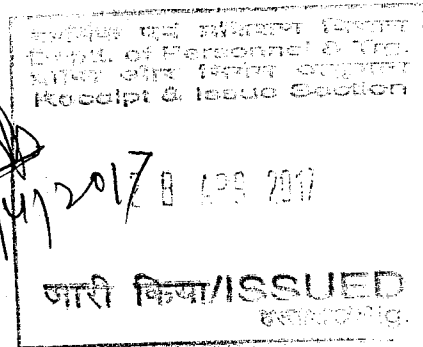 कार्मिक एवं प्रशिक्षण विभाग
Deptt. of Personnel & Trg.
Receipt & Issue Section
2017
28 APR 2017
जारी किया/ISSUED